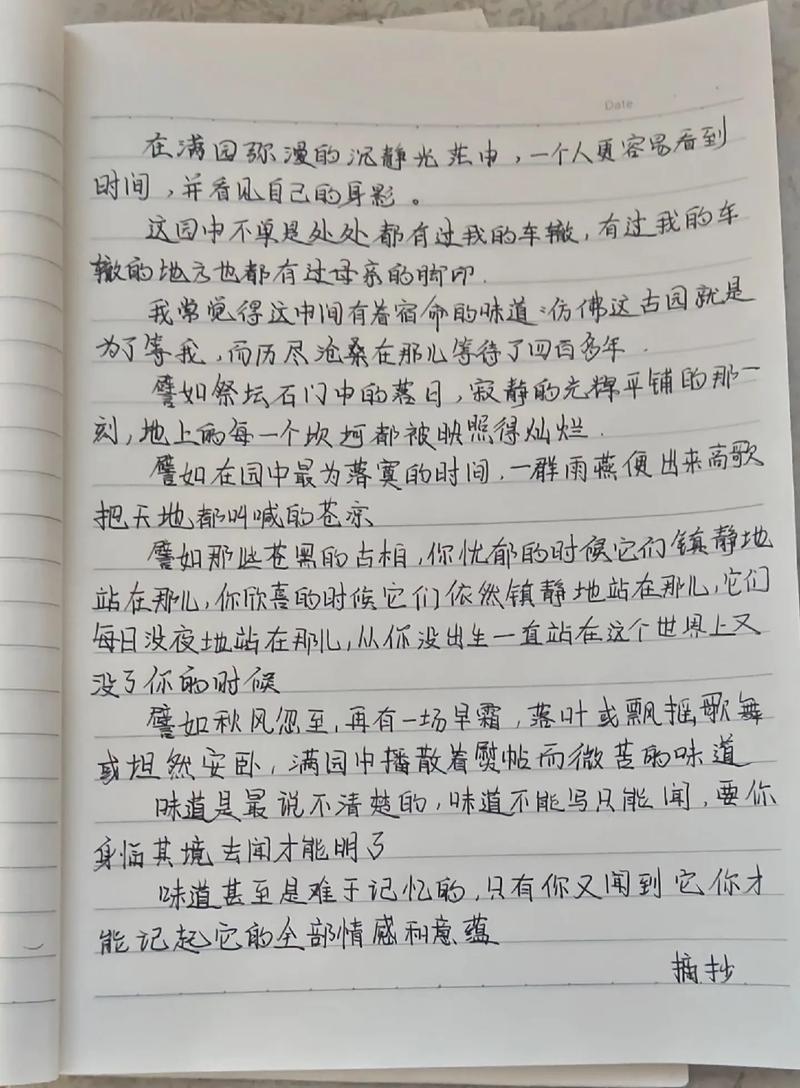 Date
在满园弥漫的沉静光茫中，一个人更容易看到
时间，并看见自己的身影。
这园中不单是处处都有过我的车辙，有过我的车
辙的地方也都有过母亲的脚印.
我常觉得这中间有着宿命的味道：仿佛这古园就是
为了等我，而历尽沧桑在那儿等待了四百多年.
譬如祭坛石门中的落日，寂静的光辉平铺的那一
刻，地上的每一个坎坷都被映照得灿烂.
譬如在园中最为落寞的时间，一群雨燕便出来高歌
把天地都叫喊的苍凉
譬如那些苍黑的古柏，你忧郁的时候它们镇静地
站在那儿，你欣喜的时候它们依然镇静地站在那儿，它们
每日没夜地站在那儿，从你没出生一直站在这个世界上又
没了你的时候
譬如秋风忽至，再有一场早霜，落叶或飘摇歌舞
或坦然安卧，满园中播散着熨帖而微苦的味道
味道是最说不清楚的，味道不能写只能闻，要你
身临其境去闻才能明了
味道甚至是难于记忆的，只有你又闻到它你才
能记起它的全部情感和意蕴
摘抄